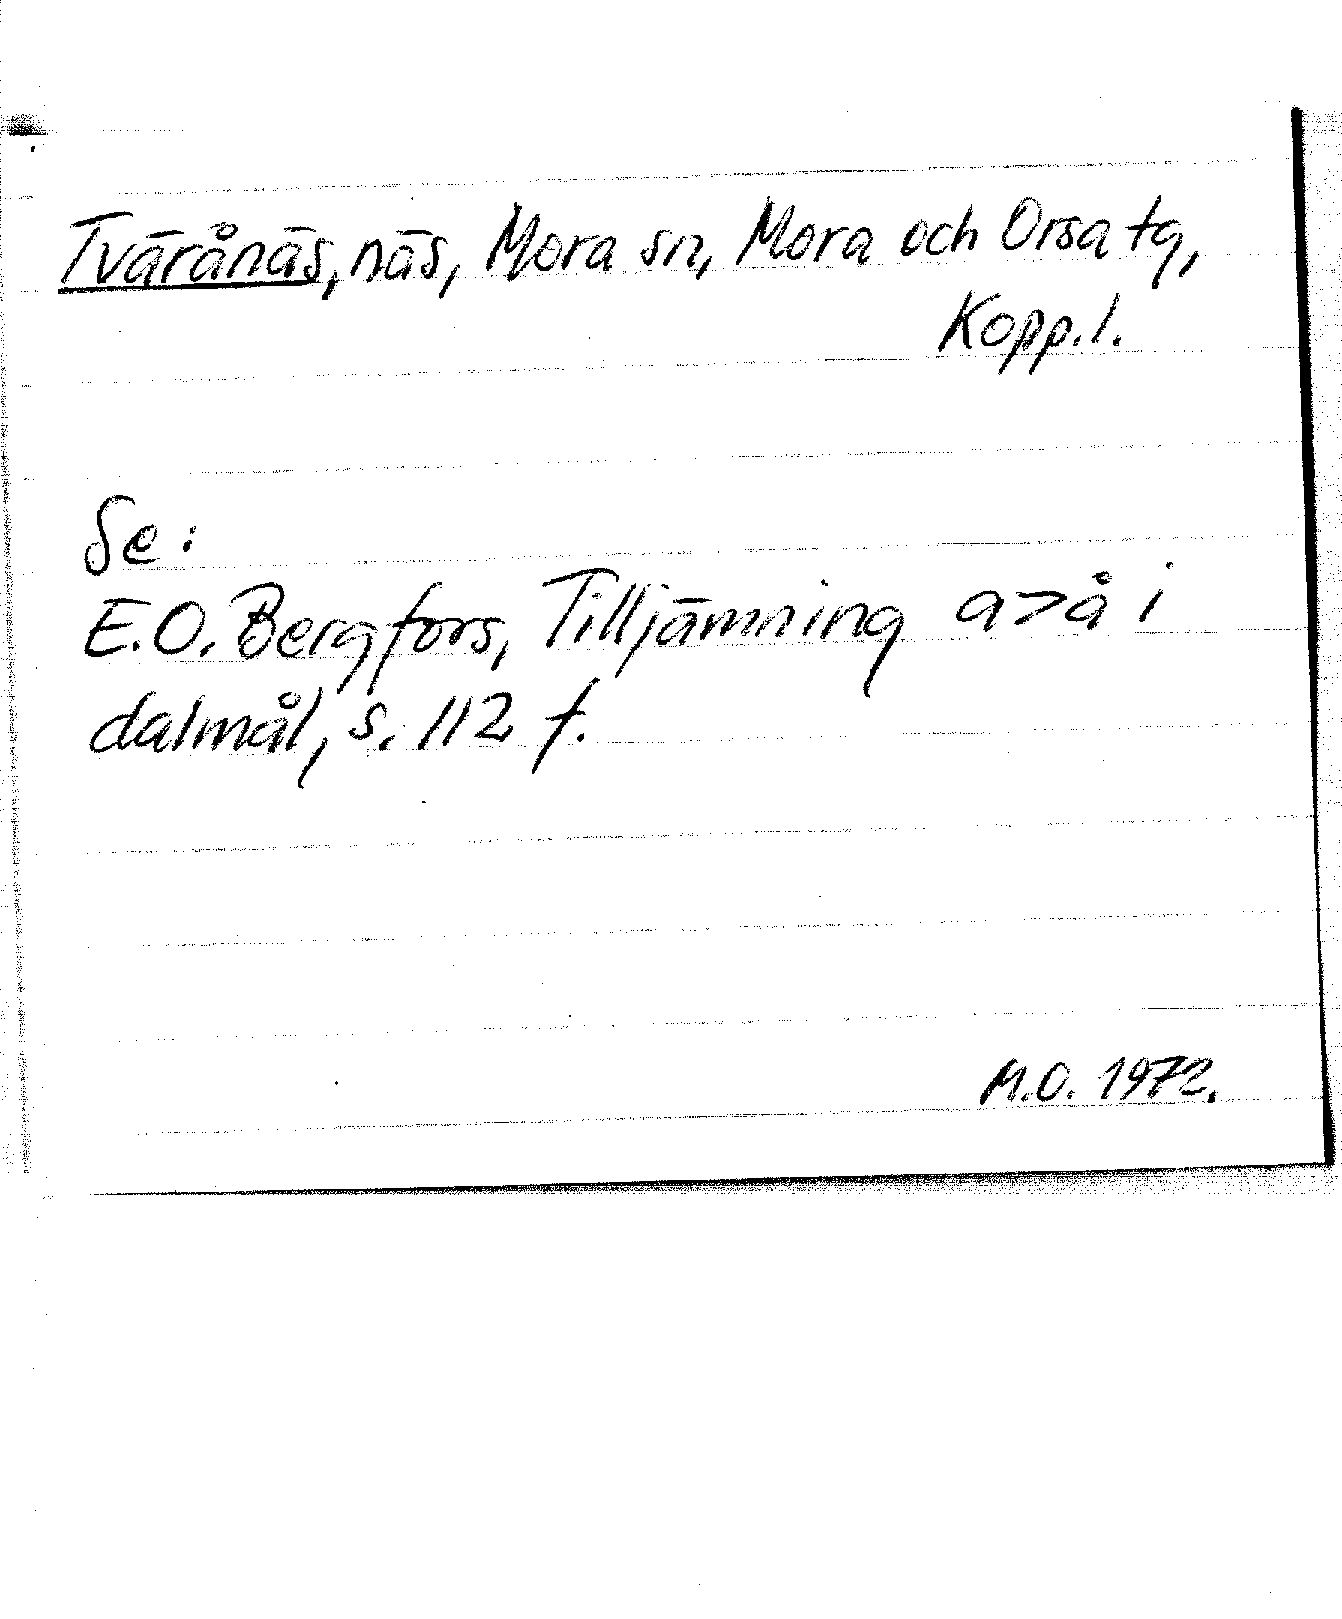 Tväränäs, näs, Mora sn, Mora och Orsa tg,
Kopp. l.
Se:
E.O. Bergfors, Tilljämning a>å i
dalmål, s. 112 f.
M.O. 1972.